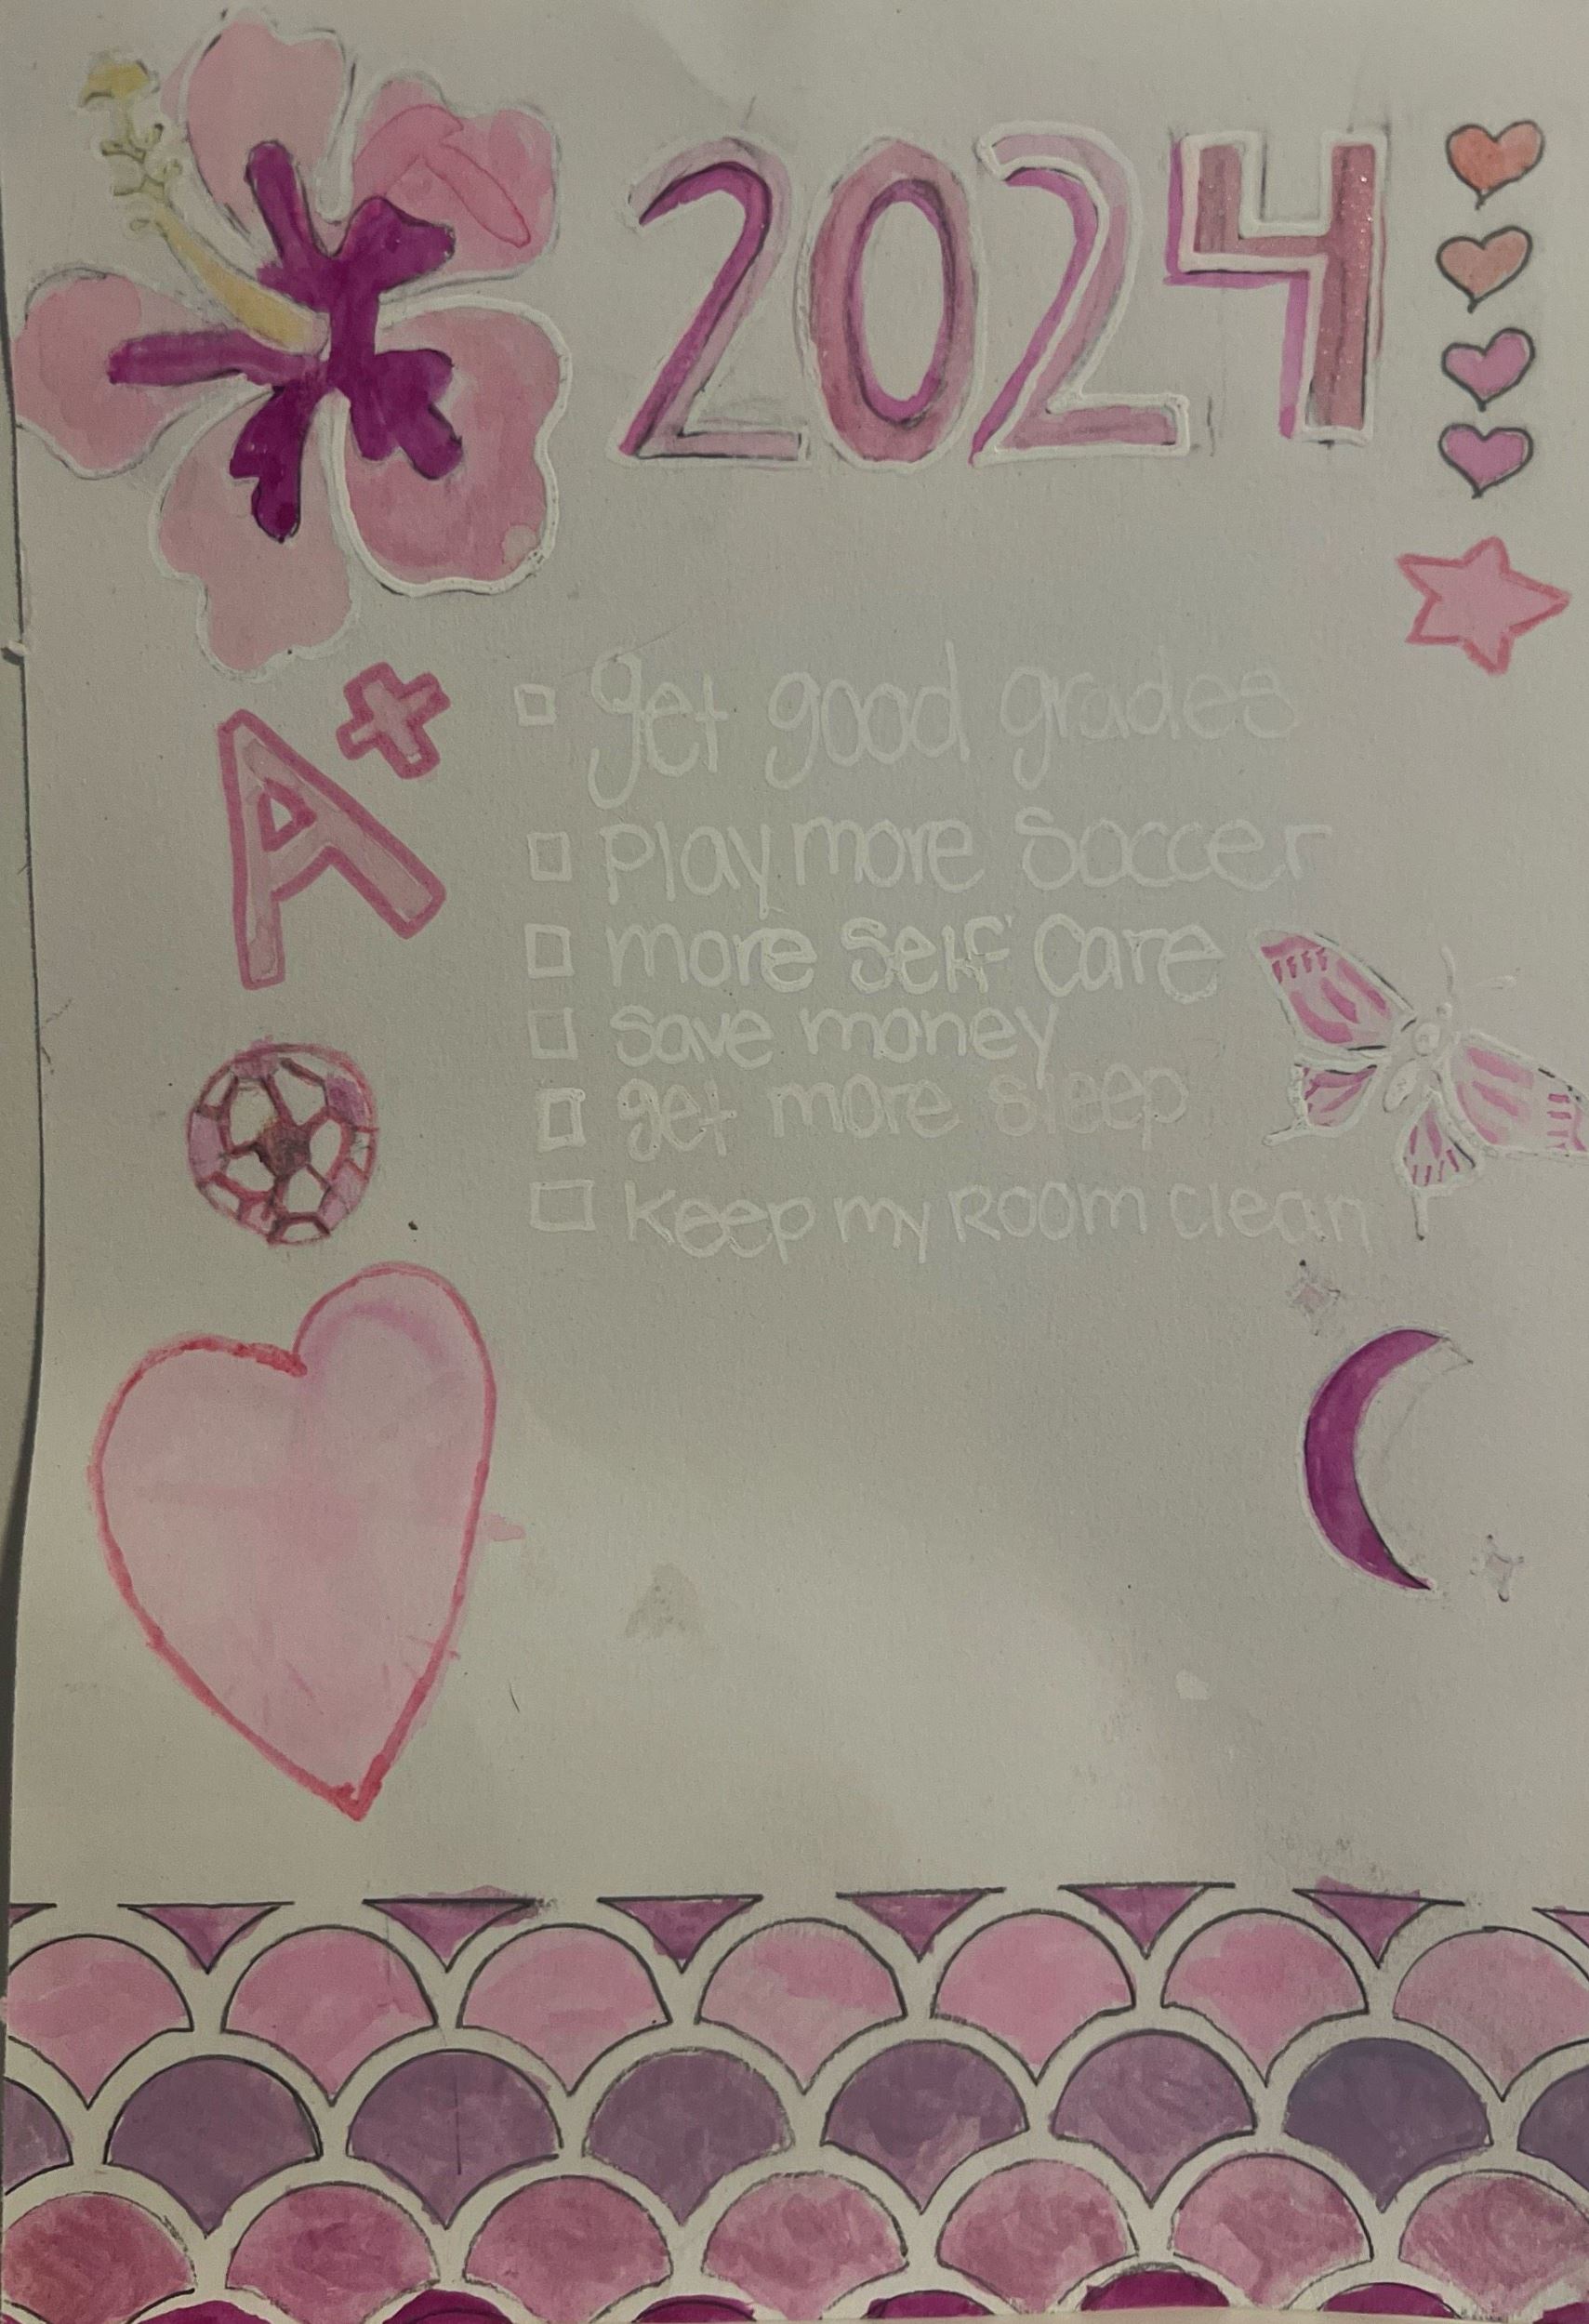 2024
A+
get good grades
Play more Soccer
more Self Care
Save money
get more sleep
Keep my Room clean